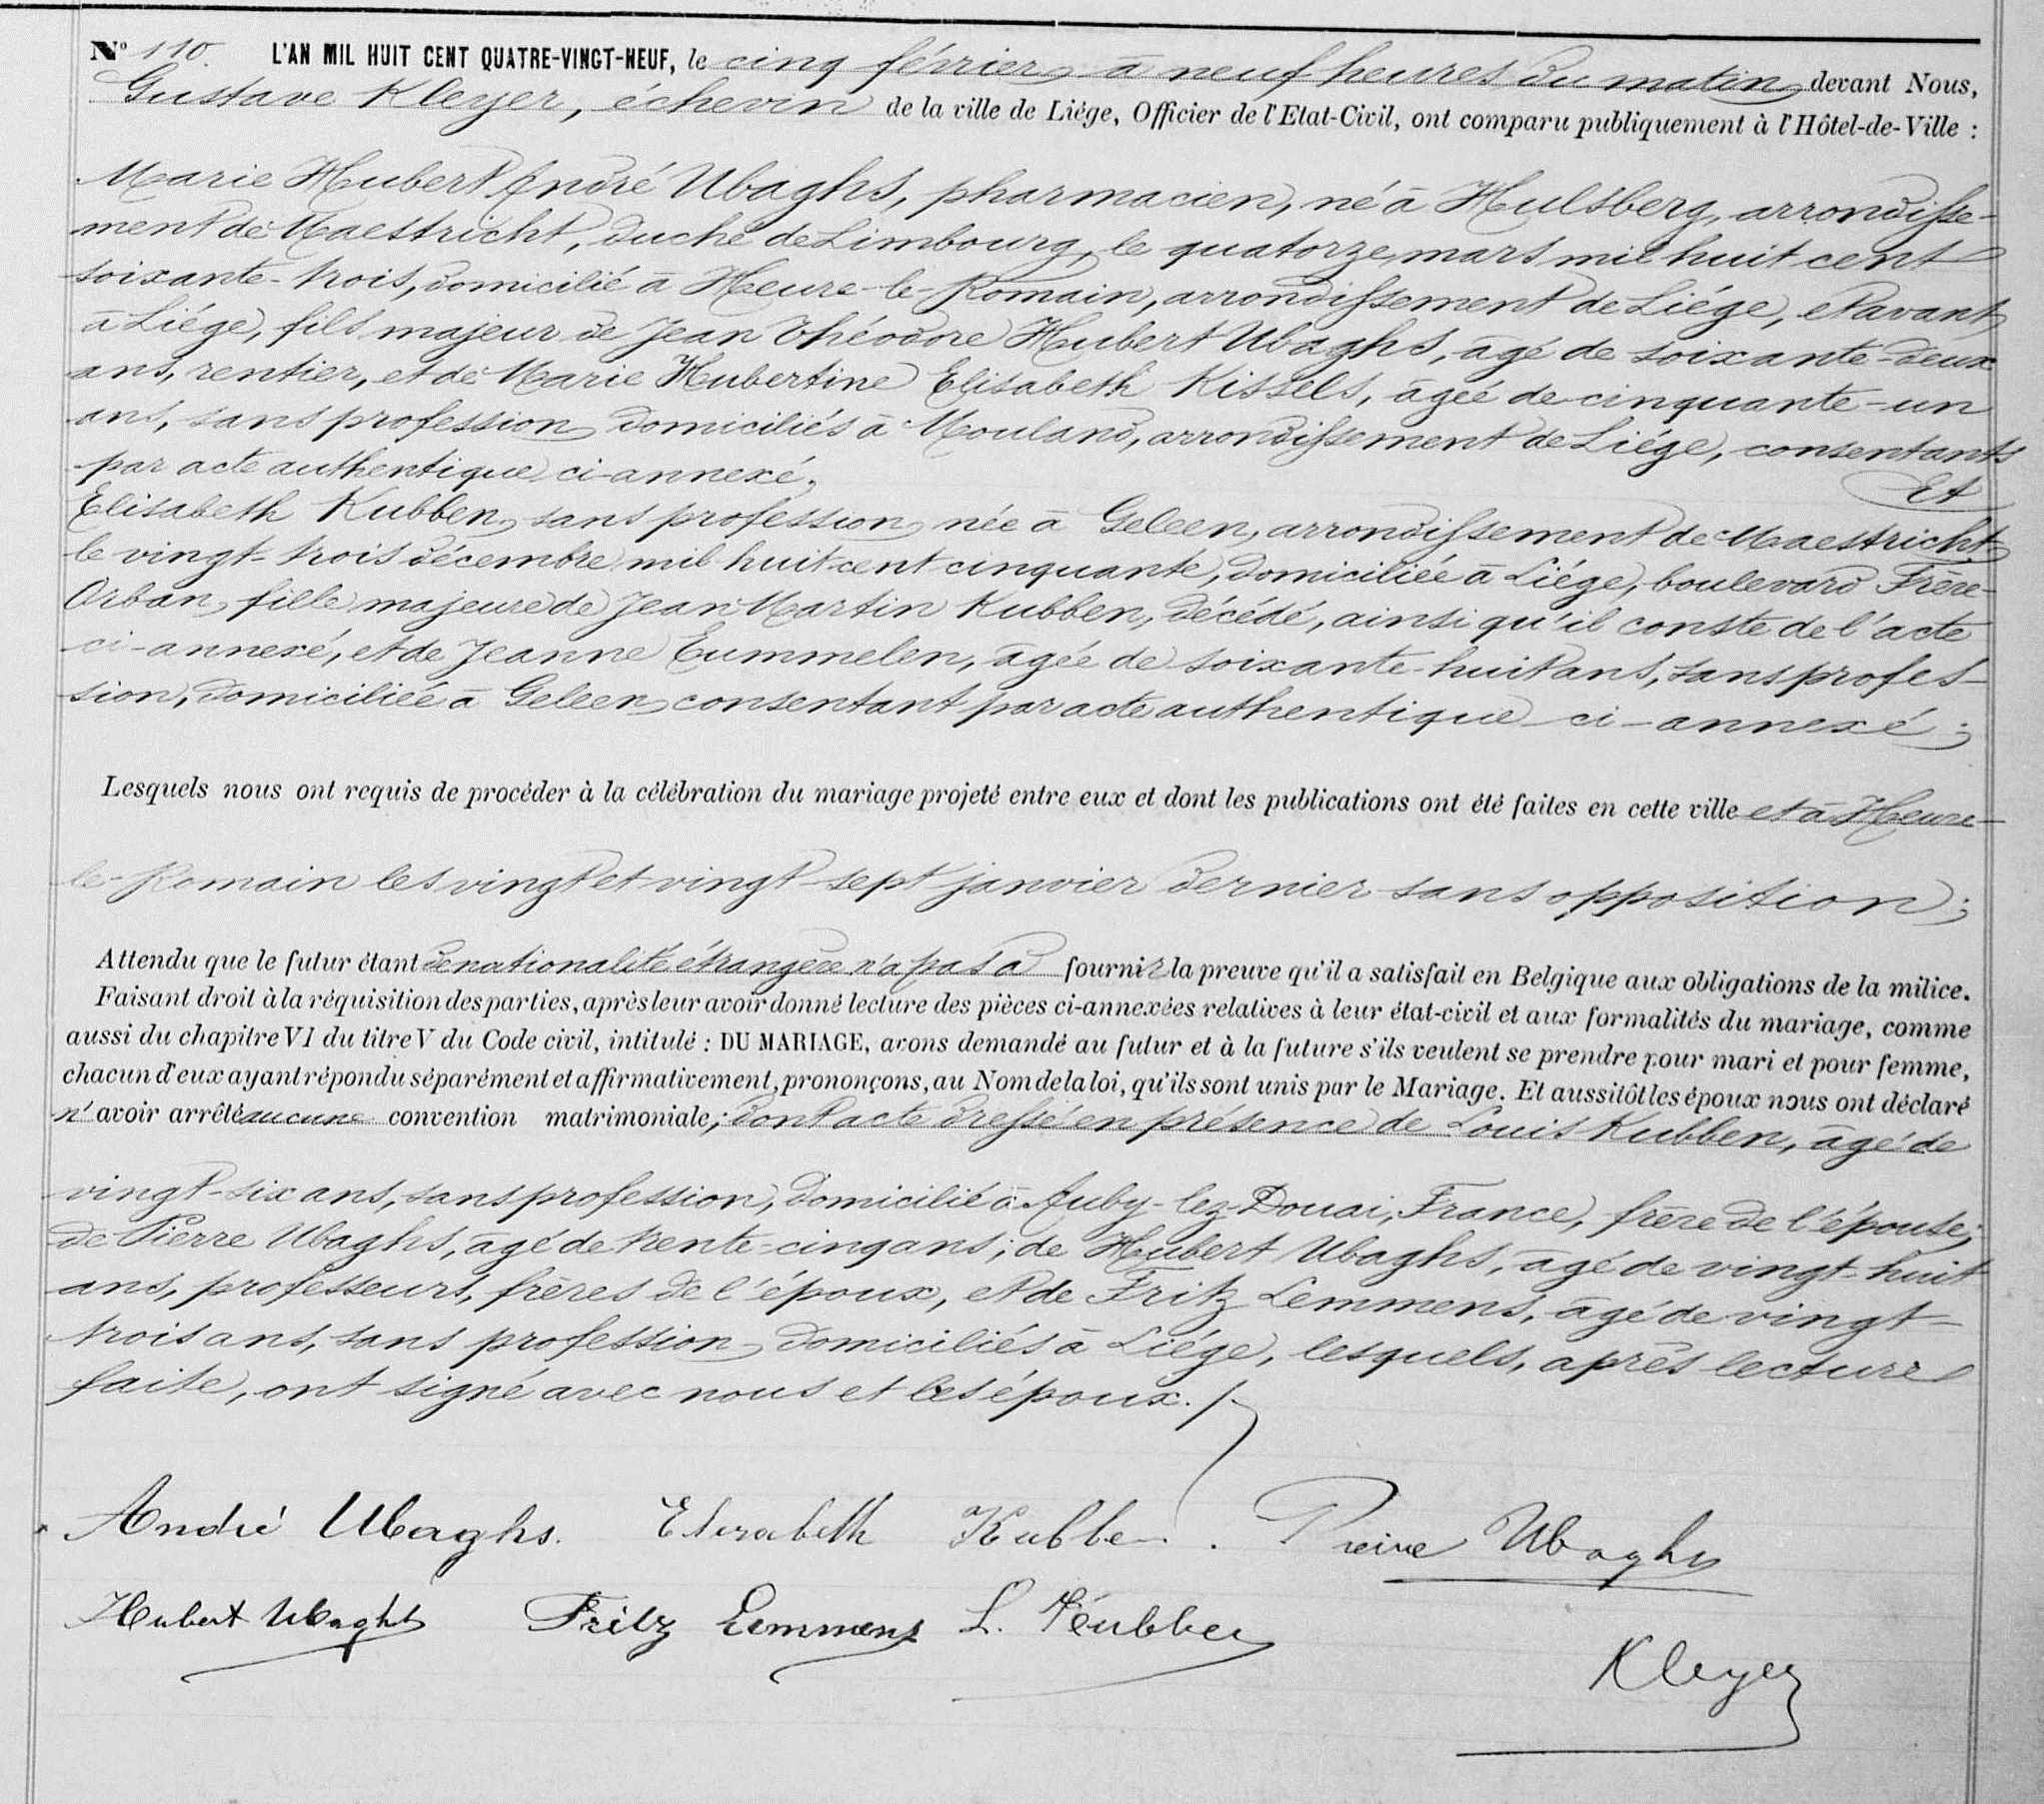 N° 110. L'AN MIL HUIT CENT QUATRE-VINGT-NEUF, le cinq février, à neuf heures du matin, devant Nous,
Gustave Kleyer, échevin de la ville de Liége, Officier de l'Etat-Civil, ont comparu publiquement à l'Hôtel-de-Ville :
Marie Hubert André Ubaghs, pharmacien, né à Hulsberg, arrondisse-
ment de Maestricht, duché de Limbourg, le quatorze mars mil huit cent
soixante-trois, domicilié à Heure-le-Romain, arrondissement de Liége, et avant
à Liége, fils majeur de Jean Théodore Hubert Ubaghs, âgé de soixante-deux
ans, rentier, et de Marie Hubertine Elisabeth Kissels, âgée de cinquante-un
ans, sans profession, domiciliés à Mouland, arrondissement de Liége, consentants
par acte authentique ci-annexé. Et
Elisabeth Kubben, sans profession, née à Geleen, arrondissement de Maestricht,
le vingt-trois décembre mil huit cent cinquante, domiciliée à Liége, boulevard Frère-
Orban, fille majeure de Jean Martin Kubben, décédé, ainsi qu'il conste de l'acte
ci-annexé, et de Jeanne Eummelen, âgée de soixante-huit ans, sans profes-
sion, domiciliée à Geleen, consentant par acte authentique ci-annexé ;
Lesquels nous ont requis de procéder à la célébration du mariage projeté entre eux et dont les publications ont été faites en cette ville et à Heure-
le-Romain les vingt et vingt-sept janvier dernier sans opposition ;
Attendu que le futur étant de nationalité étrangère n'a pas à fournir la preuve qu'il a satisfait en Belgique aux obligations de la milice.
Faisant droit à la réquisition des parties, après leur avoir donné lecture des pièces ci-annexées relatives à leur état-civil et aux formalités du mariage, comme
aussi du chapitre VI du titre V du Code civil, intitulé : DU MARIAGE, avons demandé au futur et à la future s'ils veulent se prendre pour mari et pour femme,
chacun d'eux ayant répondu séparément et affirmativement, prononçons, au Nom de la loi, qu'ils sont unis par le Mariage. Et aussitôt les époux nous ont déclaré
n'avoir arrêté aucune convention matrimoniale ; dont acte dressé en présence de Louis Kubben, âgé de
vingt-six ans, sans profession, domicilié à Auby-lez-Douai, France, frère de l'épouse ;
de Pierre Ubaghs, âgé de trente-cinq ans ; de Hubert Ubaghs, âgé de vingt-huit
ans, professeurs, frères de l'époux, et de Fritz Lemmens, âgé de vingt-
trois ans, sans profession, domiciliés à Liége, lesquels, après lecture
faite, ont signé avec nous et les époux. /.
André Ubaghs. Elisabeth Kubben. Pierre Ubaghs
Hubert Ubaghs Fritz Lemmens L. Kubben
Kleyer